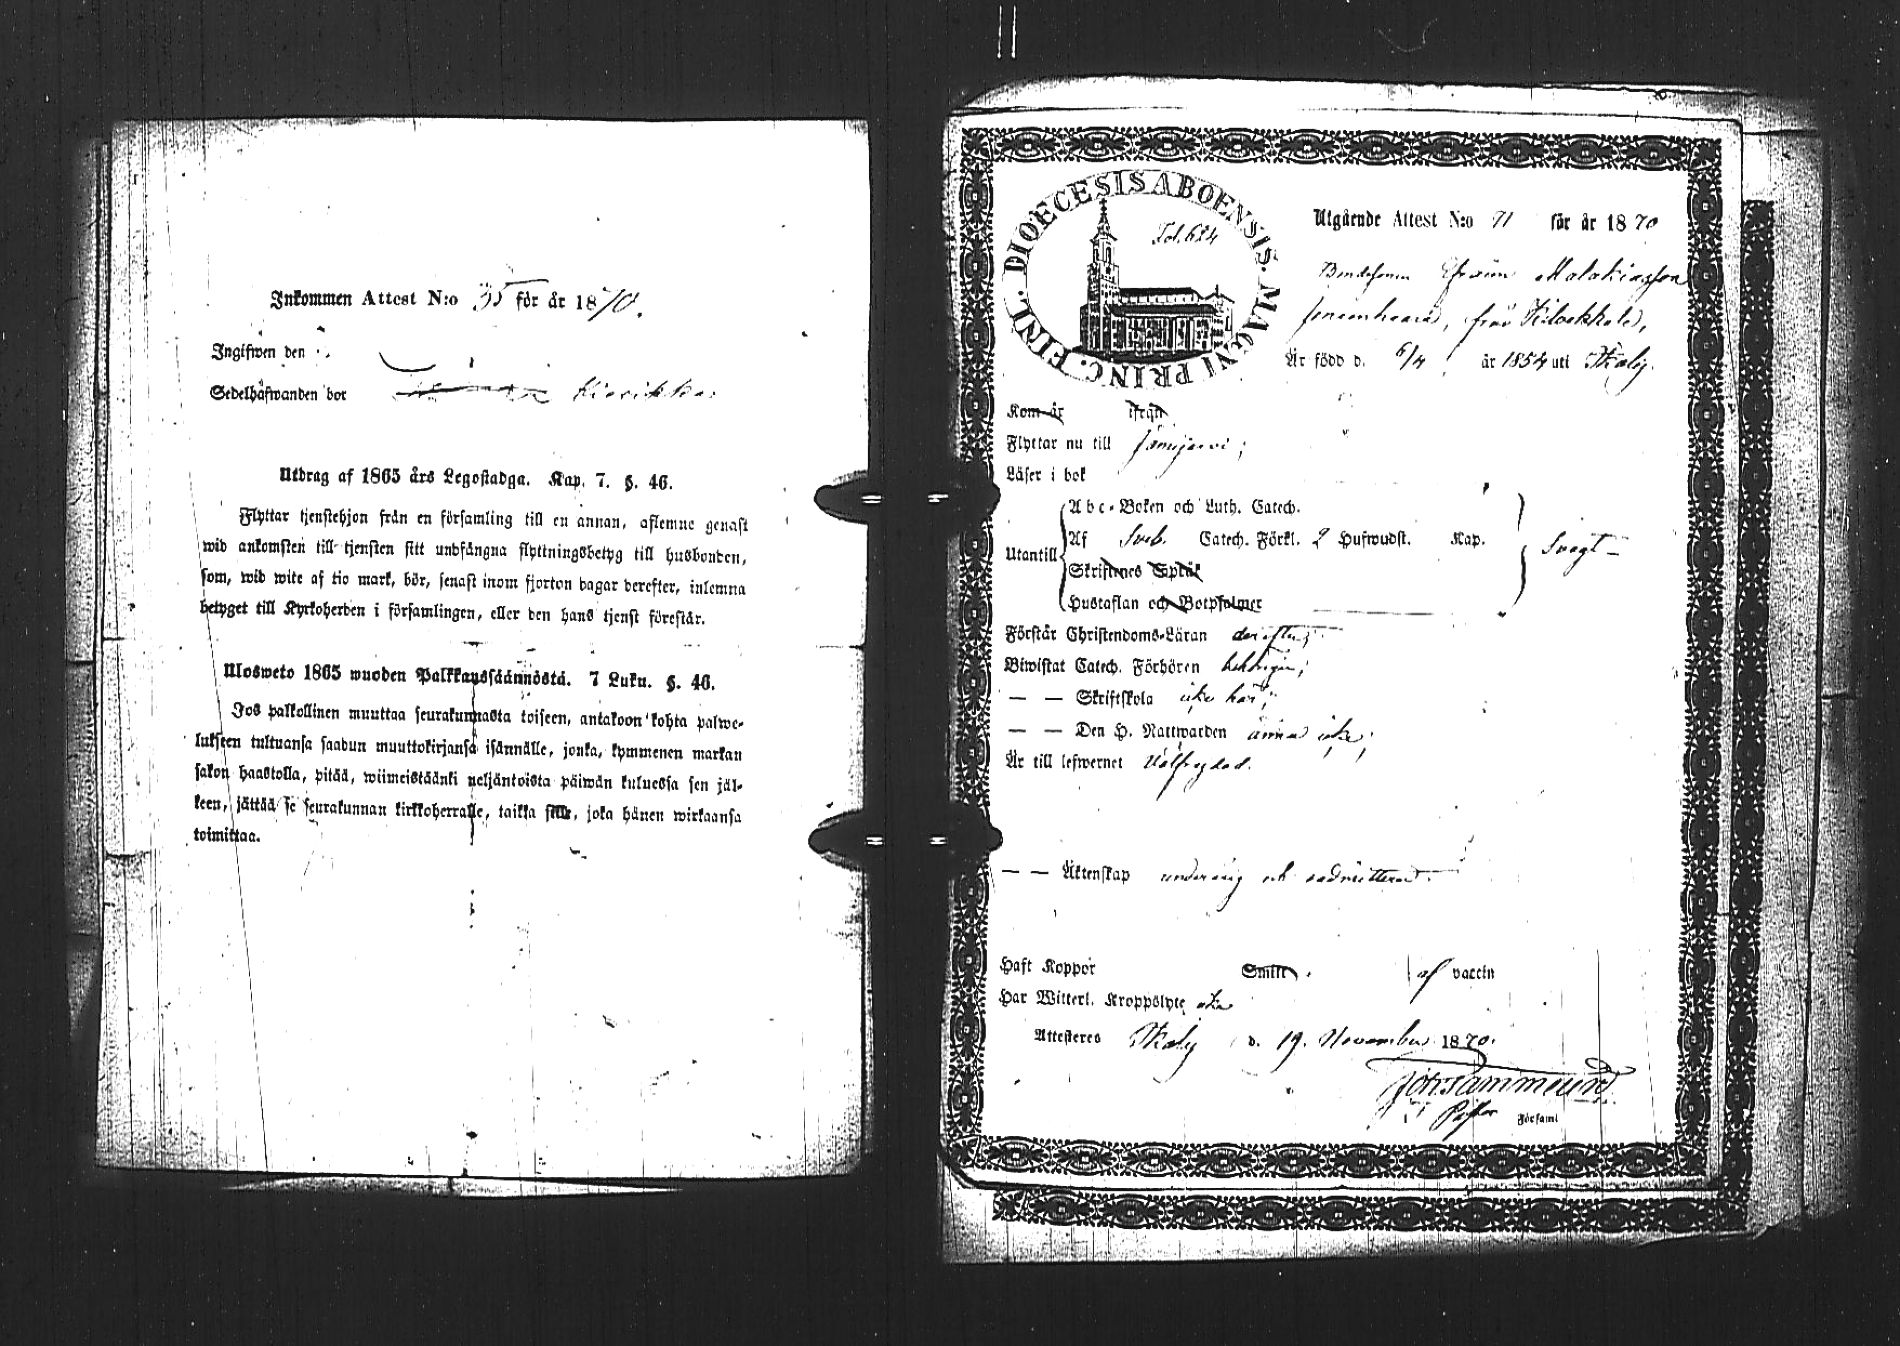 Inkommen Attest N:o 35 för år 1870.
Ingifwen den
Sedelhafwanden bor Kierikka
Utdrag af 1865 års Legostadga. Kap. 7. §. 46.
Flyttar tjenstehjon från en församling till en annan, aflemne genast
wid ankomsten till tjensten sitt undfångna flyttningsbetyg till husbonden,
som, wid wite af tio mark, bör, senast inom fjorton dagar derefter, inlemna
betyget till Kyrkoherden i församlingen, eller den hans tjenst förestår.
Ulosweto 1865 wuoden Palkkaussäännöstä. 7 Luku. §. 46.
Jos palkollinen muuttaa seurakunnasta toiseen, antakoon kohta palwe-
lukseen tultuansa saadun muuttokirjansa isännälle, jonka, kymmenen markan
sakon haastolla, pitää, wiimeistäänki neljäntoista päiwän kuluessa sen jäl-
keen, jättää se seurakunnan kirkkoherralle, taikka sille, joka hänen wirkaansa
toimittaa.
DIOECESIS ABOENSIS. MAGNI PRINC. FINL.
Fol. 624
Utgående Attest N:o 71 för år 1870
Bondesonen Efraim Malakiasson
från
Är född d. 6/4 år 1854 uti Ikalis.
Kom år ifrån
Flyttar nu till Jämijärvi;
Läser i bok
Abc-Boken och Luth. Catech.
Utantill Af Sveb. Catech. Förkl. 2 Hufwudst. Kap. Svagt
Skriftenes Språk
Hustaflan och Botpsalmer
Förstår Christendoms-Läran derefter;
Biwistat Catech. Förhören behörigen;
— — Skriftskola icke här;
— — Den H. Nattwarden ännu icke;
Är till lefwernet Välfrejdad.
— — Äktenskap underårig och oadmitterad.
Haft Koppor Smitt. af vaccin
Har Witterl. Kroppslyte icke
Attesteres Ikalis d. 19. November 1870.
Pastor Församl